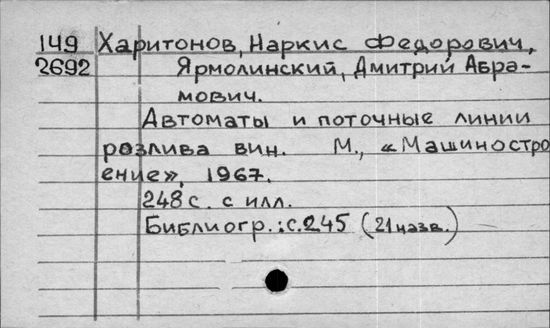 149 Харитонов, Наркис Федорович,
2692 Ярмолинский, Дмитрий Абра-
мович.
Автоматы и поточные линии
розлива вин. М., «Машиностро
ение», 1967.
248 с. с илл.
Библиогр.: с. 245 (21 назв.)